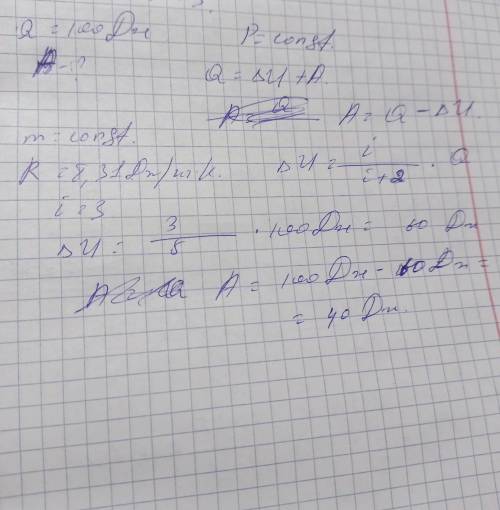 Q = 100 Дж
A - ?
P = const.
Q = ΔU + A.
A = Q - ΔU.
m = const.
R = 8,31 Дж/
ΔU = i/(i+2) · Q
i = 3
ΔU = 3/5 · 100 Дж = 60 Дж
A = 100 Дж - 60 Дж =
= 40 Дж.